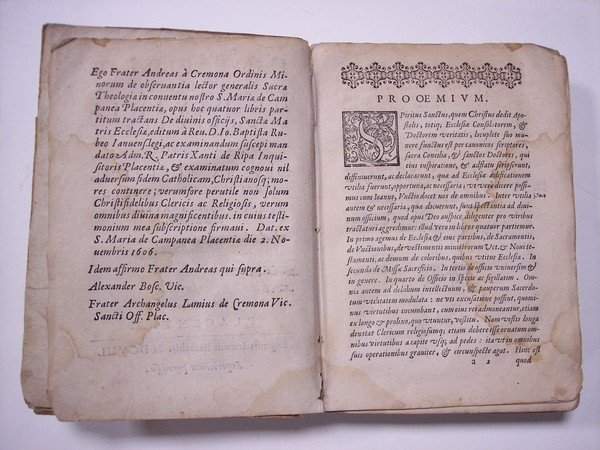 Ego Frater Andreas à Cremona Ordinis Mi-
norum de obseruantia lector generalis Sacræ
Theologiæ in conuentu nostro S. Mariæ de Cam
panea Placentiæ, opus hoc quatuor libris par-
titum tractans De diuinis officijs, Sanctæ Ma
tris Ecclesiæ, editum à Reu. D. Io. Baptista Ru
beo Ianuens. legi, ac examinandum suscepi man
dato Adm. R. Patris Xanti de Ripa Inqui
sitoris Placentiæ, & examinatum cognoui nil
aduersus fidem Catholicam, Christianosq; mo-
res continere; verum fore perutile non solum
Christifidelibus Clericis ac Religiosis, verum
omnibus diuina magnificentibus. in cuius testi-
monium mea subscriptione firmaui. Dat. ex
S. Maria de Campanea Placentiæ die 2. No-
uembris 1606.
Idem affirmo Frater Andreas qui supra.
Alexander Bosc. Vic.
Frater Archangelus Lamius de Cremona Vic.
Sancti Off. Plac.
PROOEMIVM.
SPiritus Sanctus, quem Christus dedit Apo-
stolis, totiq; Ecclesiæ Consolatorem, &
Doctorem veritatis, locuplete suo mu-
nere functus est per canonicos scriptores,
sacra Concilia, & sanctos Doctores, qui
eius inspiratione, & adflatu scripserunt,
diffinierunt, ac declararunt, quæ ad Ecclesiæ ædificationem
vtilia fuerunt, opportuna, ac necessaria; vt vere dicere possi-
mus cum Ioanne, Vnctio docet nos de omnibus. Inter vtilia
autem & necessaria, quæ docuerunt, sunt spectantia ad diui-
num officium, quod opus Deo auspice diligenter pro viribus
tractaturi aggredimur: illud vero in libros quatuor partimur.
In primo agemus de Ecclesia & eius partibus, de Sacramentis,
de Vnctionibus, de vestimentis ministrorum Vet. & Noui Te-
stamenti, ac demum de coloribus, quibus vtitur Ecclesia. In
secundo de Missæ Sacrificio. In tertio de officio vniuersim &
in genere. In quarto de Officio in specie ac sigillatim. Omni-
bus tamen in libris ad debilium intellectum, & pauperum Sacerdo-
tum vtilitatem modulata: ne vti excusatione possint, quomi-
nus virtutibus incumbant, rei familiaris augmentantur, etiam
ex longo & prolixo, quo vtuntur, vestitu. Nam vestis longa
denotat Clericum religiosumq; etiam debere esse ornatum omni-
bus virtutibus a capite vsq; ad pedes: ita vt in omnibus
suis operationibus grauiter, & circunspecte agat. Hinc est
a 2 quod